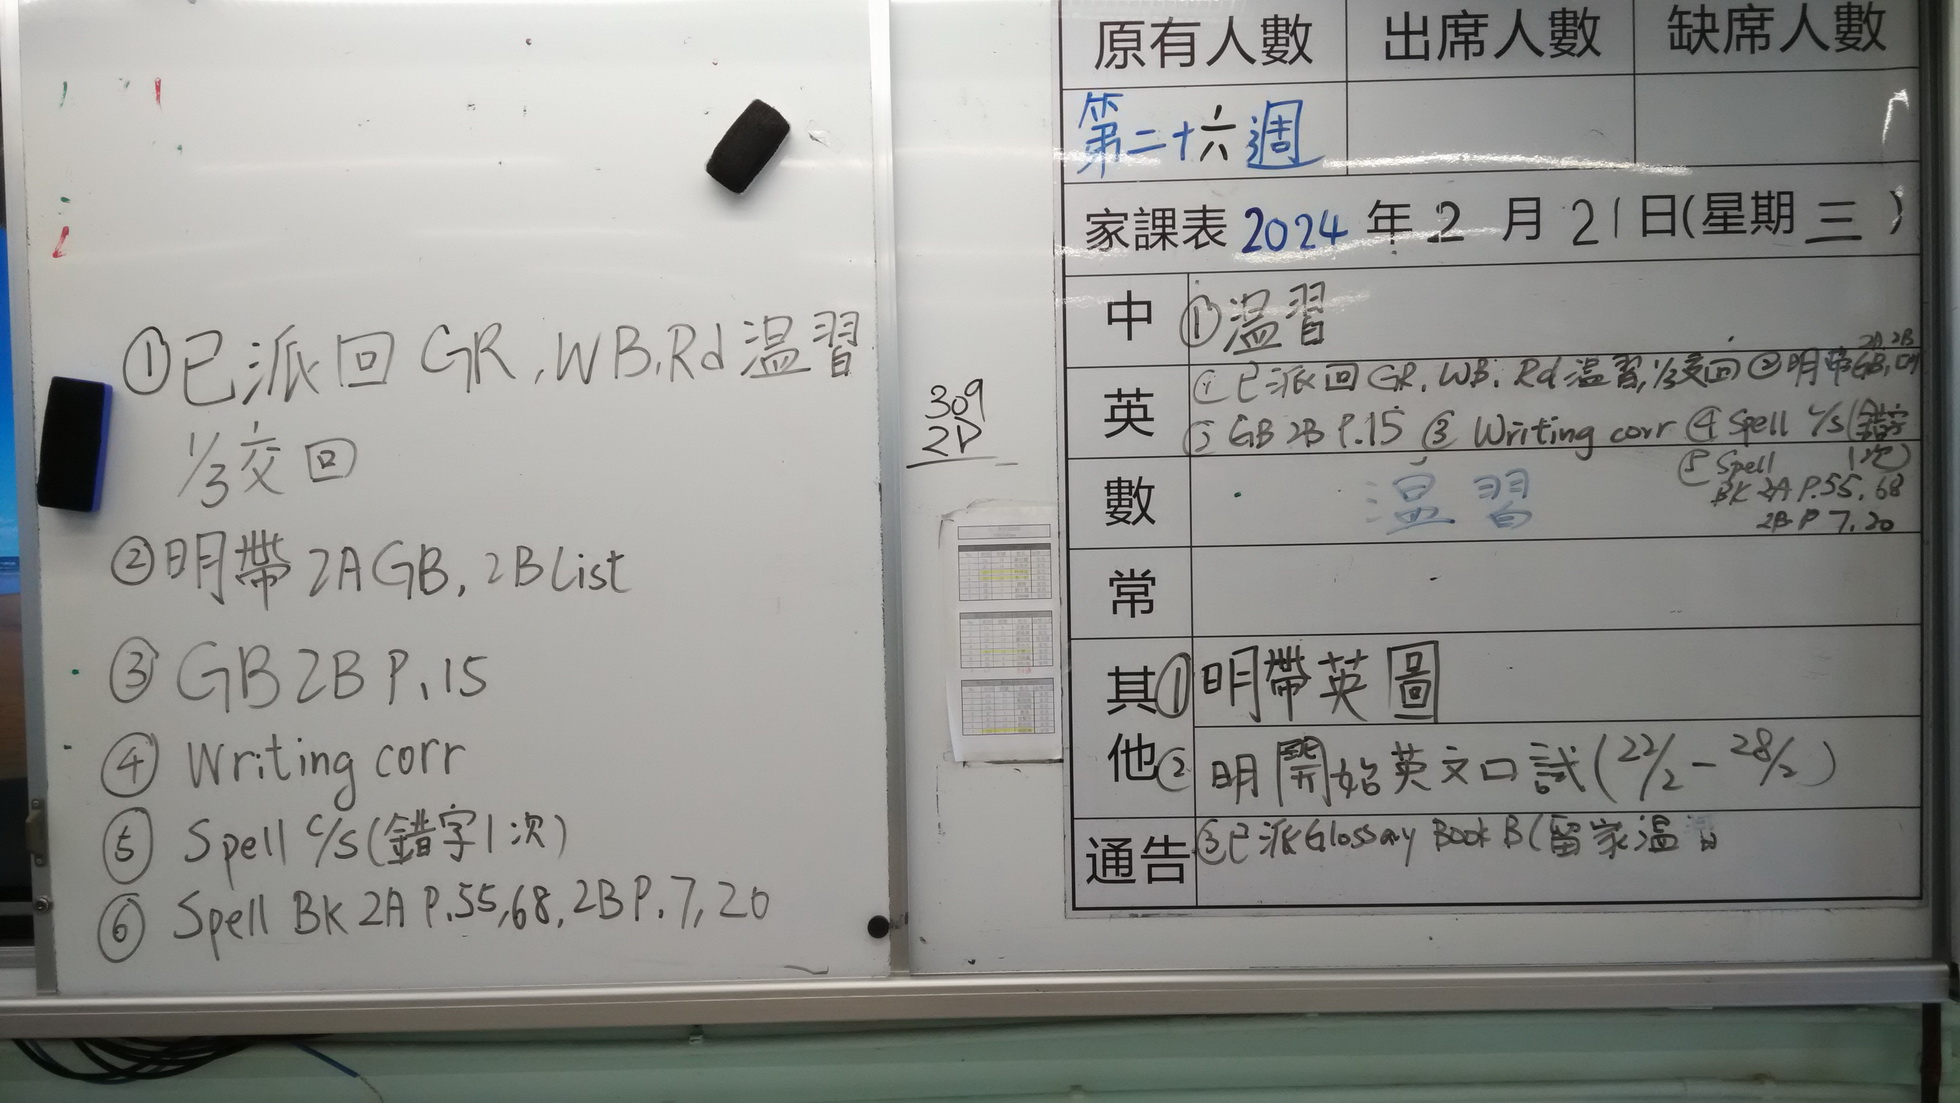 ①已派回 GR, WB, Rd 温習
1/3 交回
②明帶 2A GB, 2B List
③ GB 2B P.15
④ Writing corr
⑤ Spell c/s (錯字1次)
⑥ Spell BK 2A P.55, 68, 2B P. 7, 20
309
2D
原有人數 出席人數 缺席人數
第二十六週
家課表 2024 年 2 月 21 日(星期 三 )
中 ①温習
英 ①已派回 GR, WB, Rd 温習, 1/3交回 ②明帶 GB,
2A 2B
GB 2B P.15 ③ Writing corr ④ Spell c/s (錯字
1次)
數 温習
⑤ Spell
BK 2A P.55, 68
2B P 7, 20
常
其他 ①明帶英圖
②明開始英文口試 (22/2 - 28/2)
通告 ③已派 Glossary Book B (留家温習